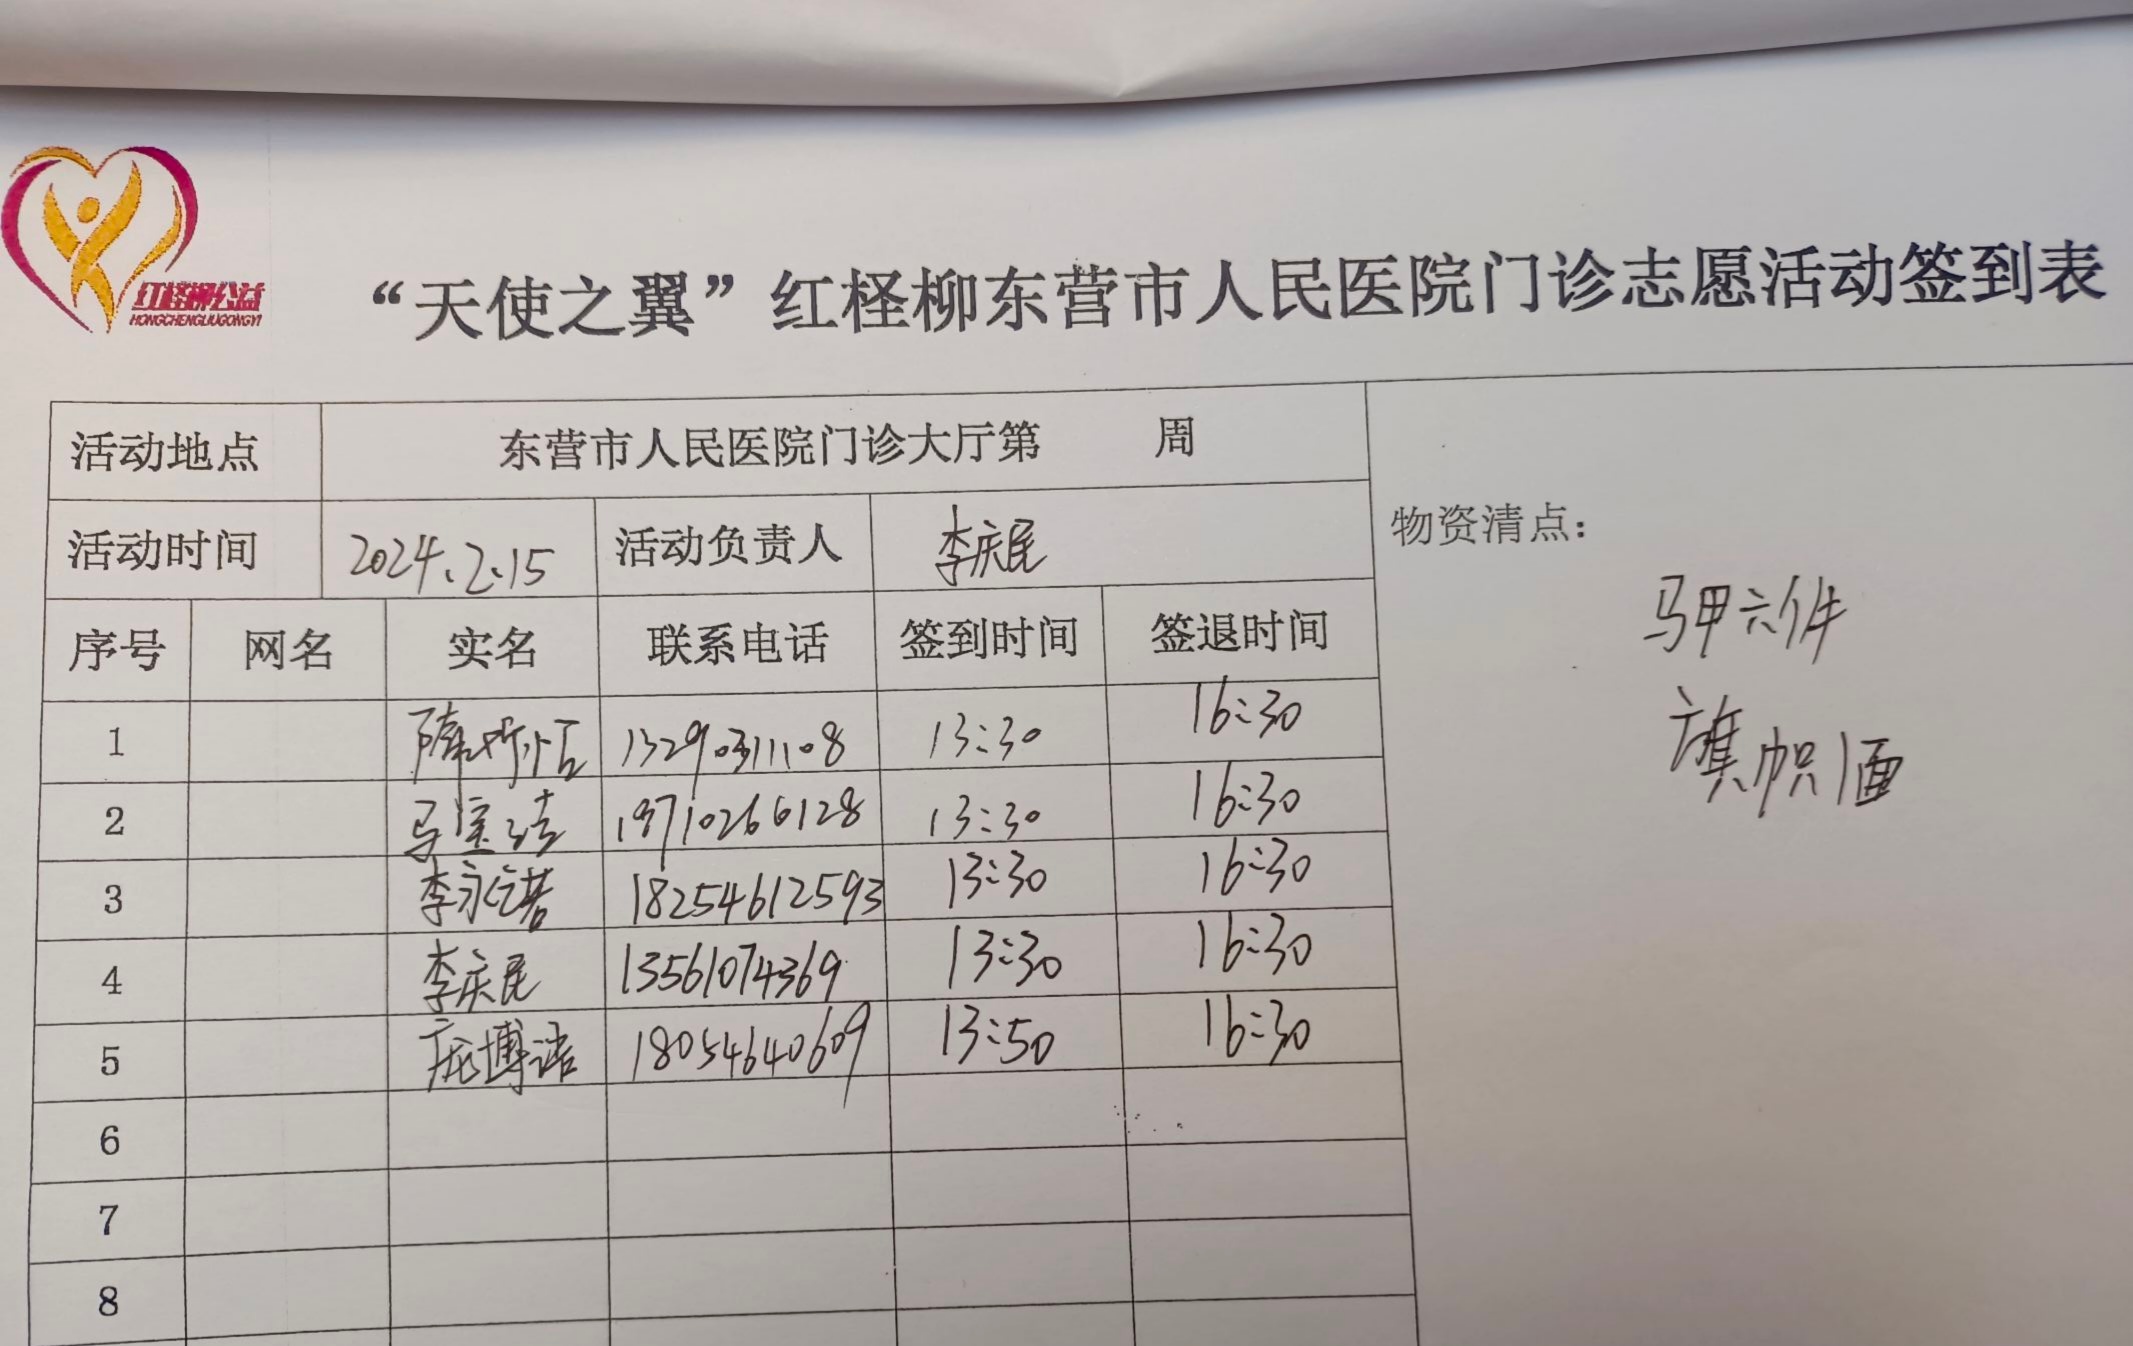 红柽柳公益
HONGCHENGLIUGONGYI
“天使之翼”红柽柳东营市人民医院门诊志愿活动签到表
活动地点 东营市人民医院门诊大厅第 周
活动时间 2024.2.15 活动负责人 李庆民
序号 网名 实名 联系电话 签到时间 签退时间
1 13290311108 13:30 16:30
2 马宝洁 13:30 16:30
3 李永 18254612593 13:30 16:30
4 李庆民 13561074369 13:30 16:30
5 庞博诺 18054640609 13:50 16:30
6
7
8
物资清点：
马甲六件
旗帜1面